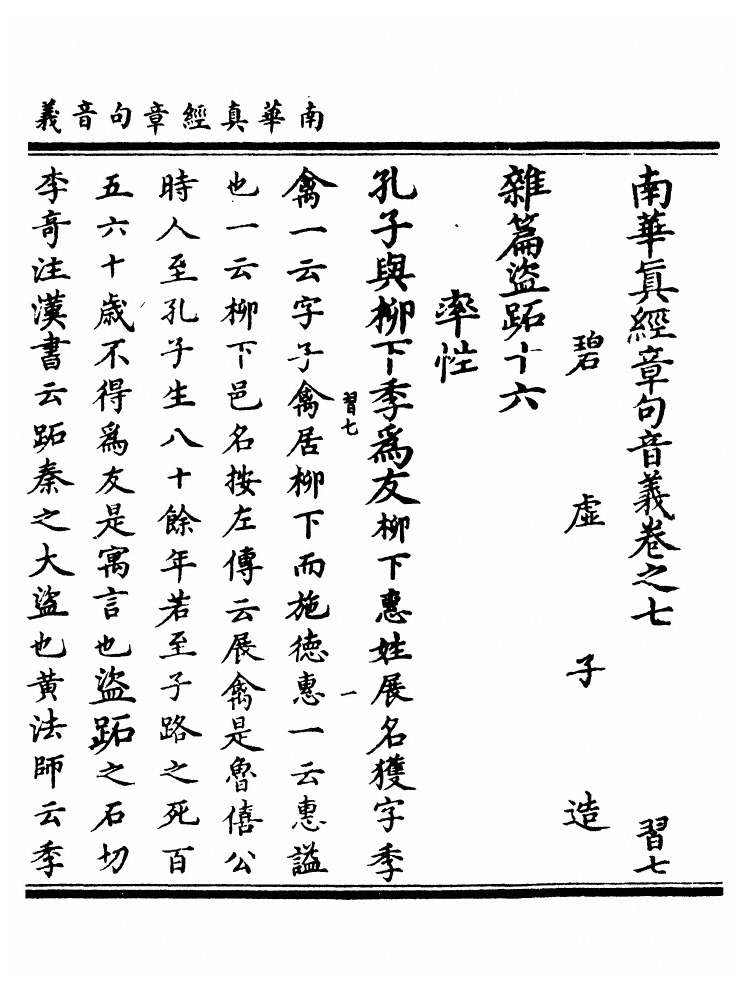 南華真經章句音義
南華眞經章句音義卷之七　習七
碧虛子造
雜篇盜跖十六
率性
孔子與柳下季為友柳下惠姓展名獲字季
習七　一
禽一云字子禽居柳下而施德惠一云惠謚
也一云柳下邑名按左傳云展禽是魯僖公
時人至孔子生八十餘年若至子路之死百
五六十歲不得為友是寓言也盜跖之石切
李奇注漢書云跖秦之大盜也黃法師云季